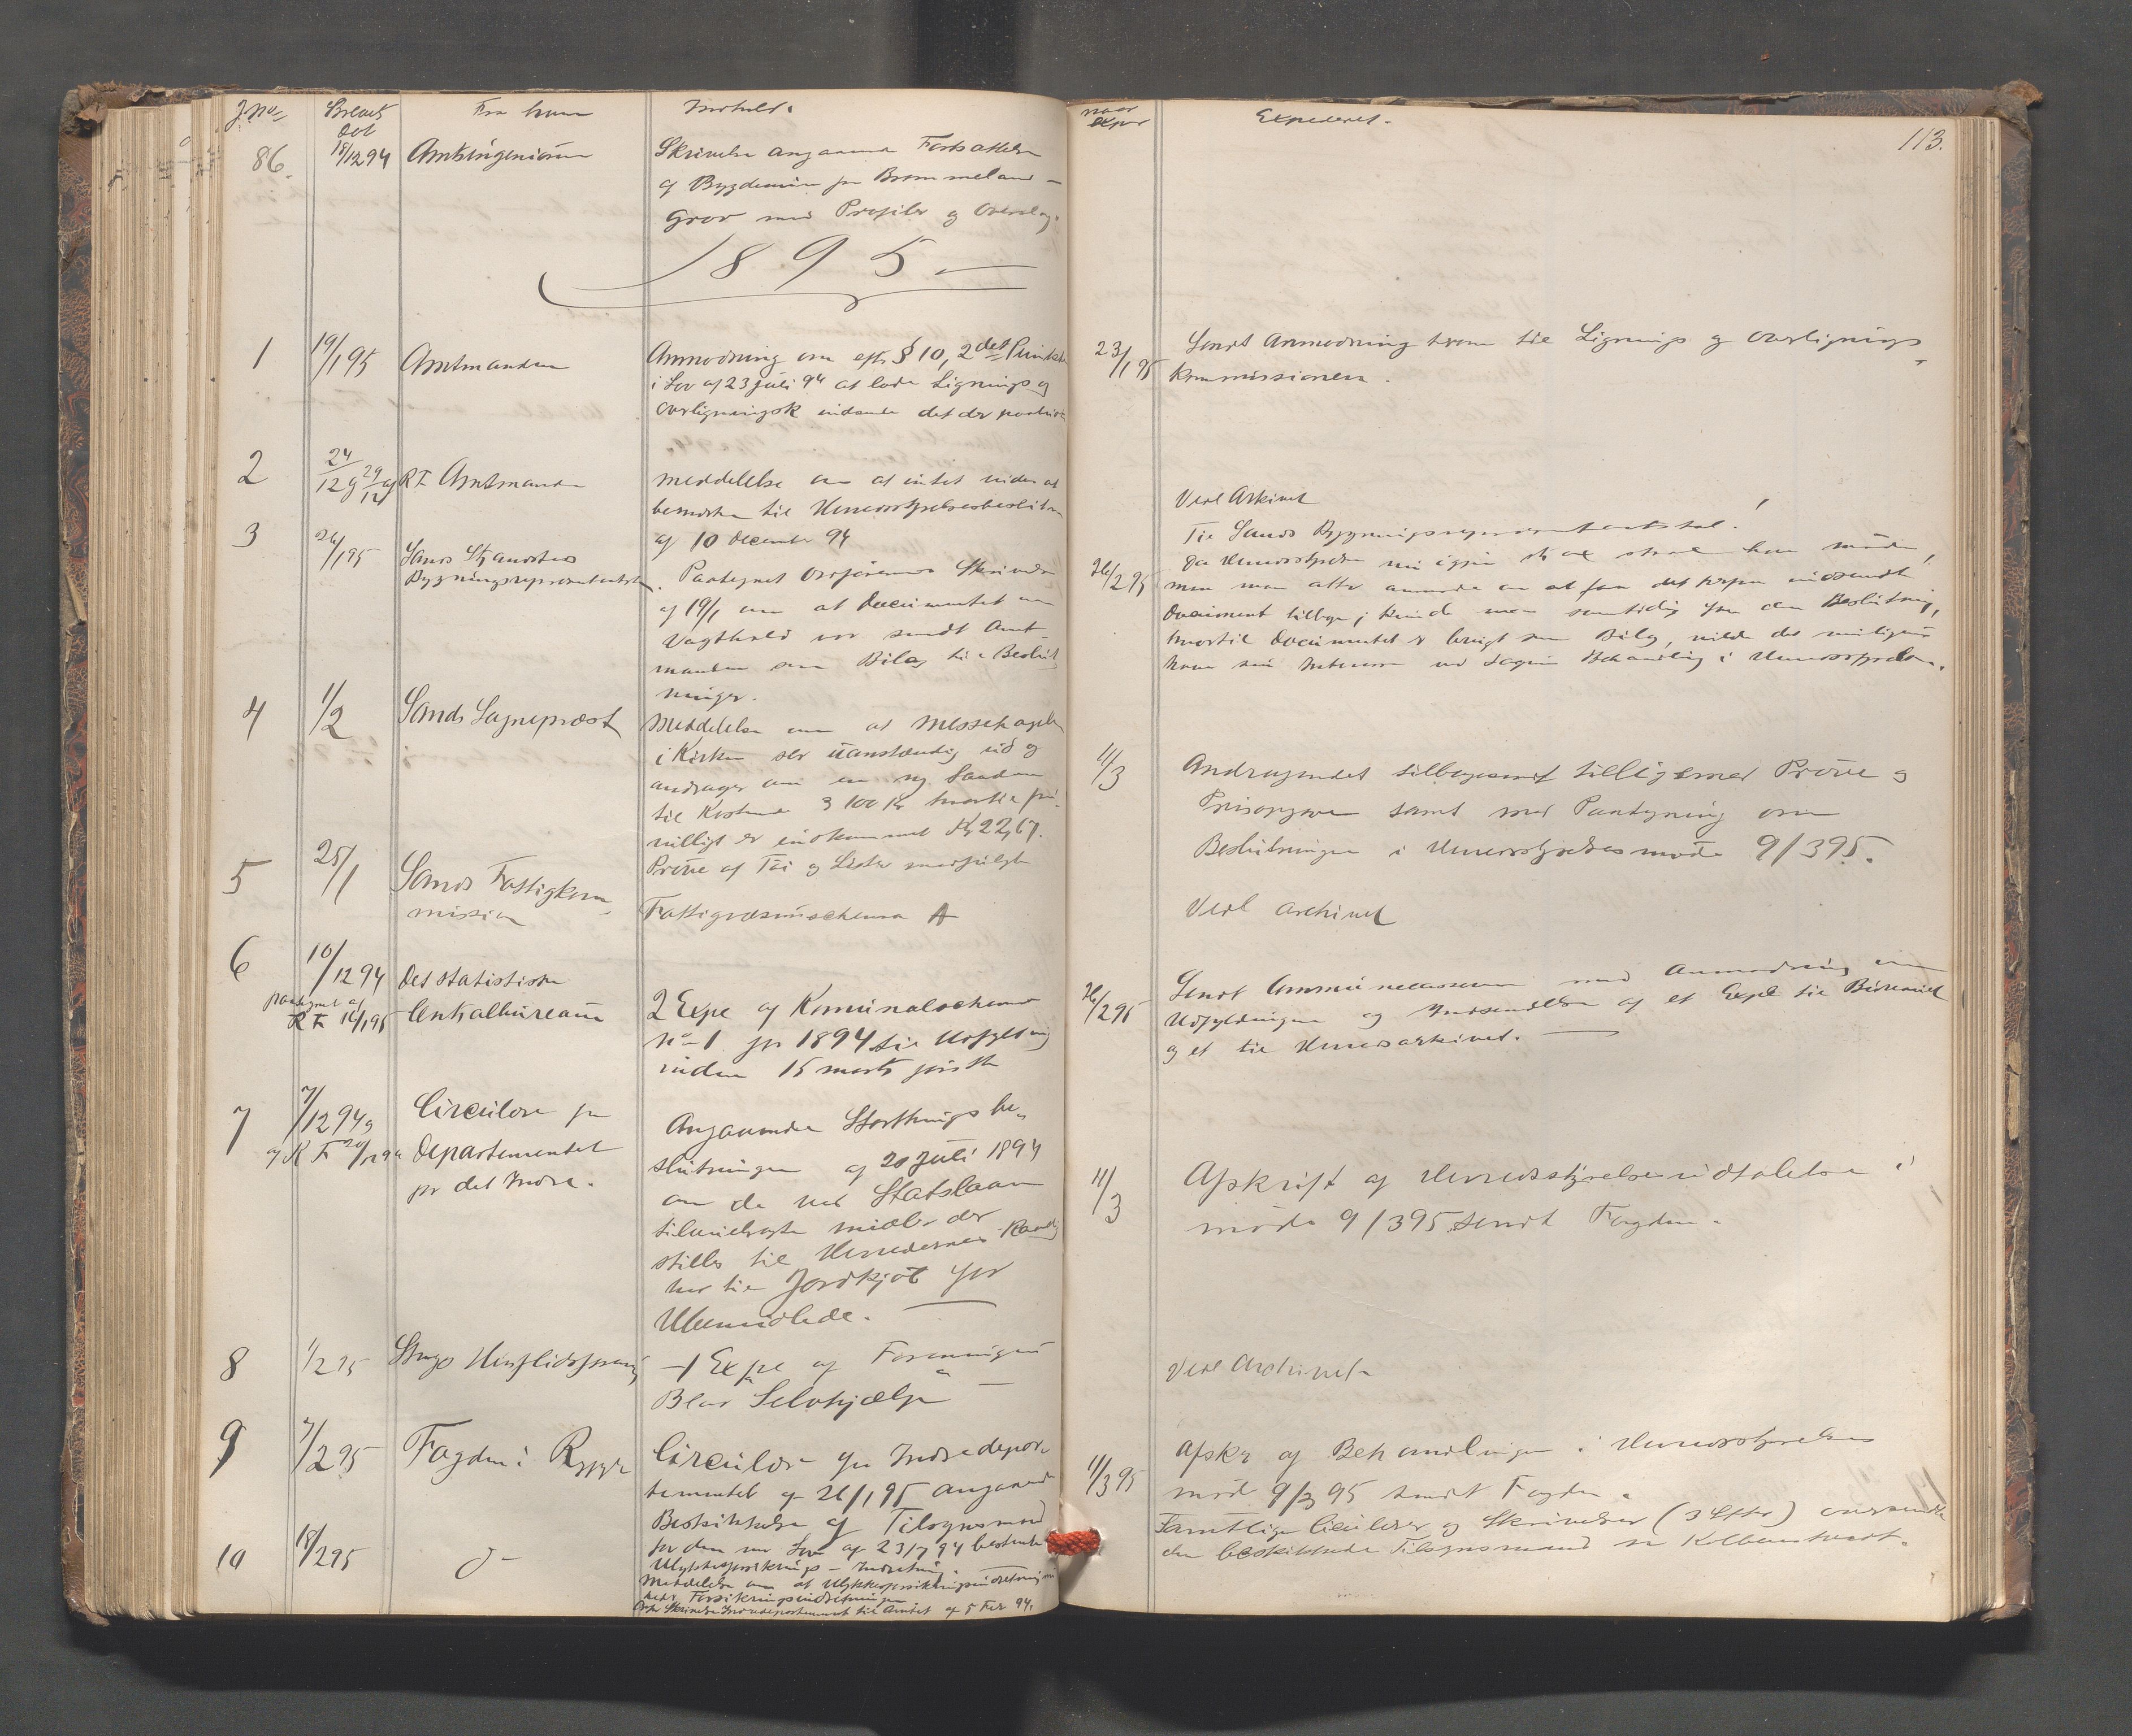 J.No. Brevets Dat Fra hvem Indhold.
86. 18/12 94 Amtsingeniøren Skrivelse angaaende Fortsættelse
af Bygdevei fra Brommeland -
Grov med Profiler og Overslag.
1895
1 19/1 95 Amtmanden Anmodning om efter § 10, 2det Punktum
i Lov af 23 Juli 94 at lade Lignings og
Overligningsk indsende det der
2 24/12 og 29/12 94 RF Amtmanden Meddelelse om at intet vides at
bemærke til Herredsstyrelsesbeslutn
af 10 December 94
3 26/1 95 Sands Strandsteds
Bygningsrepræsentantsk. Paategnet Ordførerens Skrivelse
af 19/1 om at Documentet om
Vagthold var sendt Amt-
manden som Bilag til Beslut-
ninger.
4 1/2 Sands Sognepræst Meddelelse om at Messehagelen
i Kirken ser uanstændig ud og
andrager om en ny Saadan
til Kostende 3 100 Kr hvortil fri-
villigt er indkommet Kr 22,67.
Prøve af Tøi og Lister medfulgte
5 25/1 Sands Fattigkom-
mission Fattigvæsensschema A
6 10/12 94 Det statistiske
paategnet af
RF 16/1 95 Centralbureau 2 Expe af Komunalschema
No 1 for 1894 til Udfyldning
inden 15 marts førstk
7 7/12 94 og
af RF 20/12 94 Circulære fra
Departementet
for det Indre. Angaaende Storthings be-
slutningen af 20 Juli 1894
om de ved Statslaan
tilveiebragte midler der
stilles til Herredernes Raadig
hed til Jordkjøb for
Ubemidlede.
8 1/2 95 1 Expe af Foreningens
Blad Selvhjælp
9 7/2 95 Fogden i Ryfylke Circulære fra Indredepar-
tementet af 26/1 95 angaaende
Beskikkelse af Tilsynsmand
for den ved Lov af 23/7 94 bestemte
Ulykkesforsikrings - Indretning.
10 18/2 95 do Meddelelse om at Ulykkesforsikringsindretningen
heder Forsikringsindretningen
Skrivelse Indredepartementet til Amtet af 5 Feb 94.
naar exper Expederet. 113.
23/1 95 Sendt Anmodning herom til Lignings og Overlignings-
kommissionen.
Vedl Arkivet
Til Sands Bygningsrepræsentantskab!
26/2 95 Da Herredsstyrelsen nu igjen skal have møde,
men man atter anmode om at faa det herfra indsendte
Document tilbage; kund man samtidig faa den Beslutning,
hvortil Documentet er brugt som Bilag, vilde det muligens
have sin Interesse ved Sagens Behandling i Herredsstyrelsen.
11/3 Andragendet tilbagesendt tilligemed Prøve og
Prisopgave samt med Paategning om
Beslutningen i Herredsstyrelsesmøde 9/3 95.
Vedl Archivet
26/2 95 Sendt Communecasseren med Anmodning om
Udfyldningen og Indsendelse af et Expl til Bureauet
og et til Herredsarkivet.
11/3 Afskrift af Herredsstyrelsesudtalelse i
møde 9/3 95 sendt Fogden.
Vedl Archivet
11/3 95 Afskr af Behandlingen i Herredsstyrelses
mød 9/3 95 sendt Fogden.
Samtlige Circulærer og Skrivelser (3 Hfter) oversendt
den beskikkede Tilsynsmand